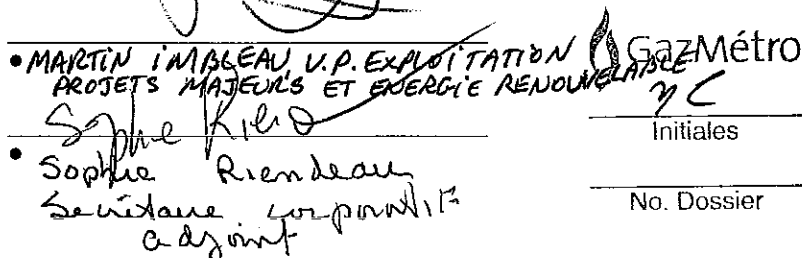 • MARTIN IMBLEAU V.P. EXPLOITATION
PROJETS MAJEURS ET ENERGIE RENOUVELABLE
GazMétro
Initiales
• Sophie Riendeau
Secrétaire corporatif
adjoint
No. Dossier